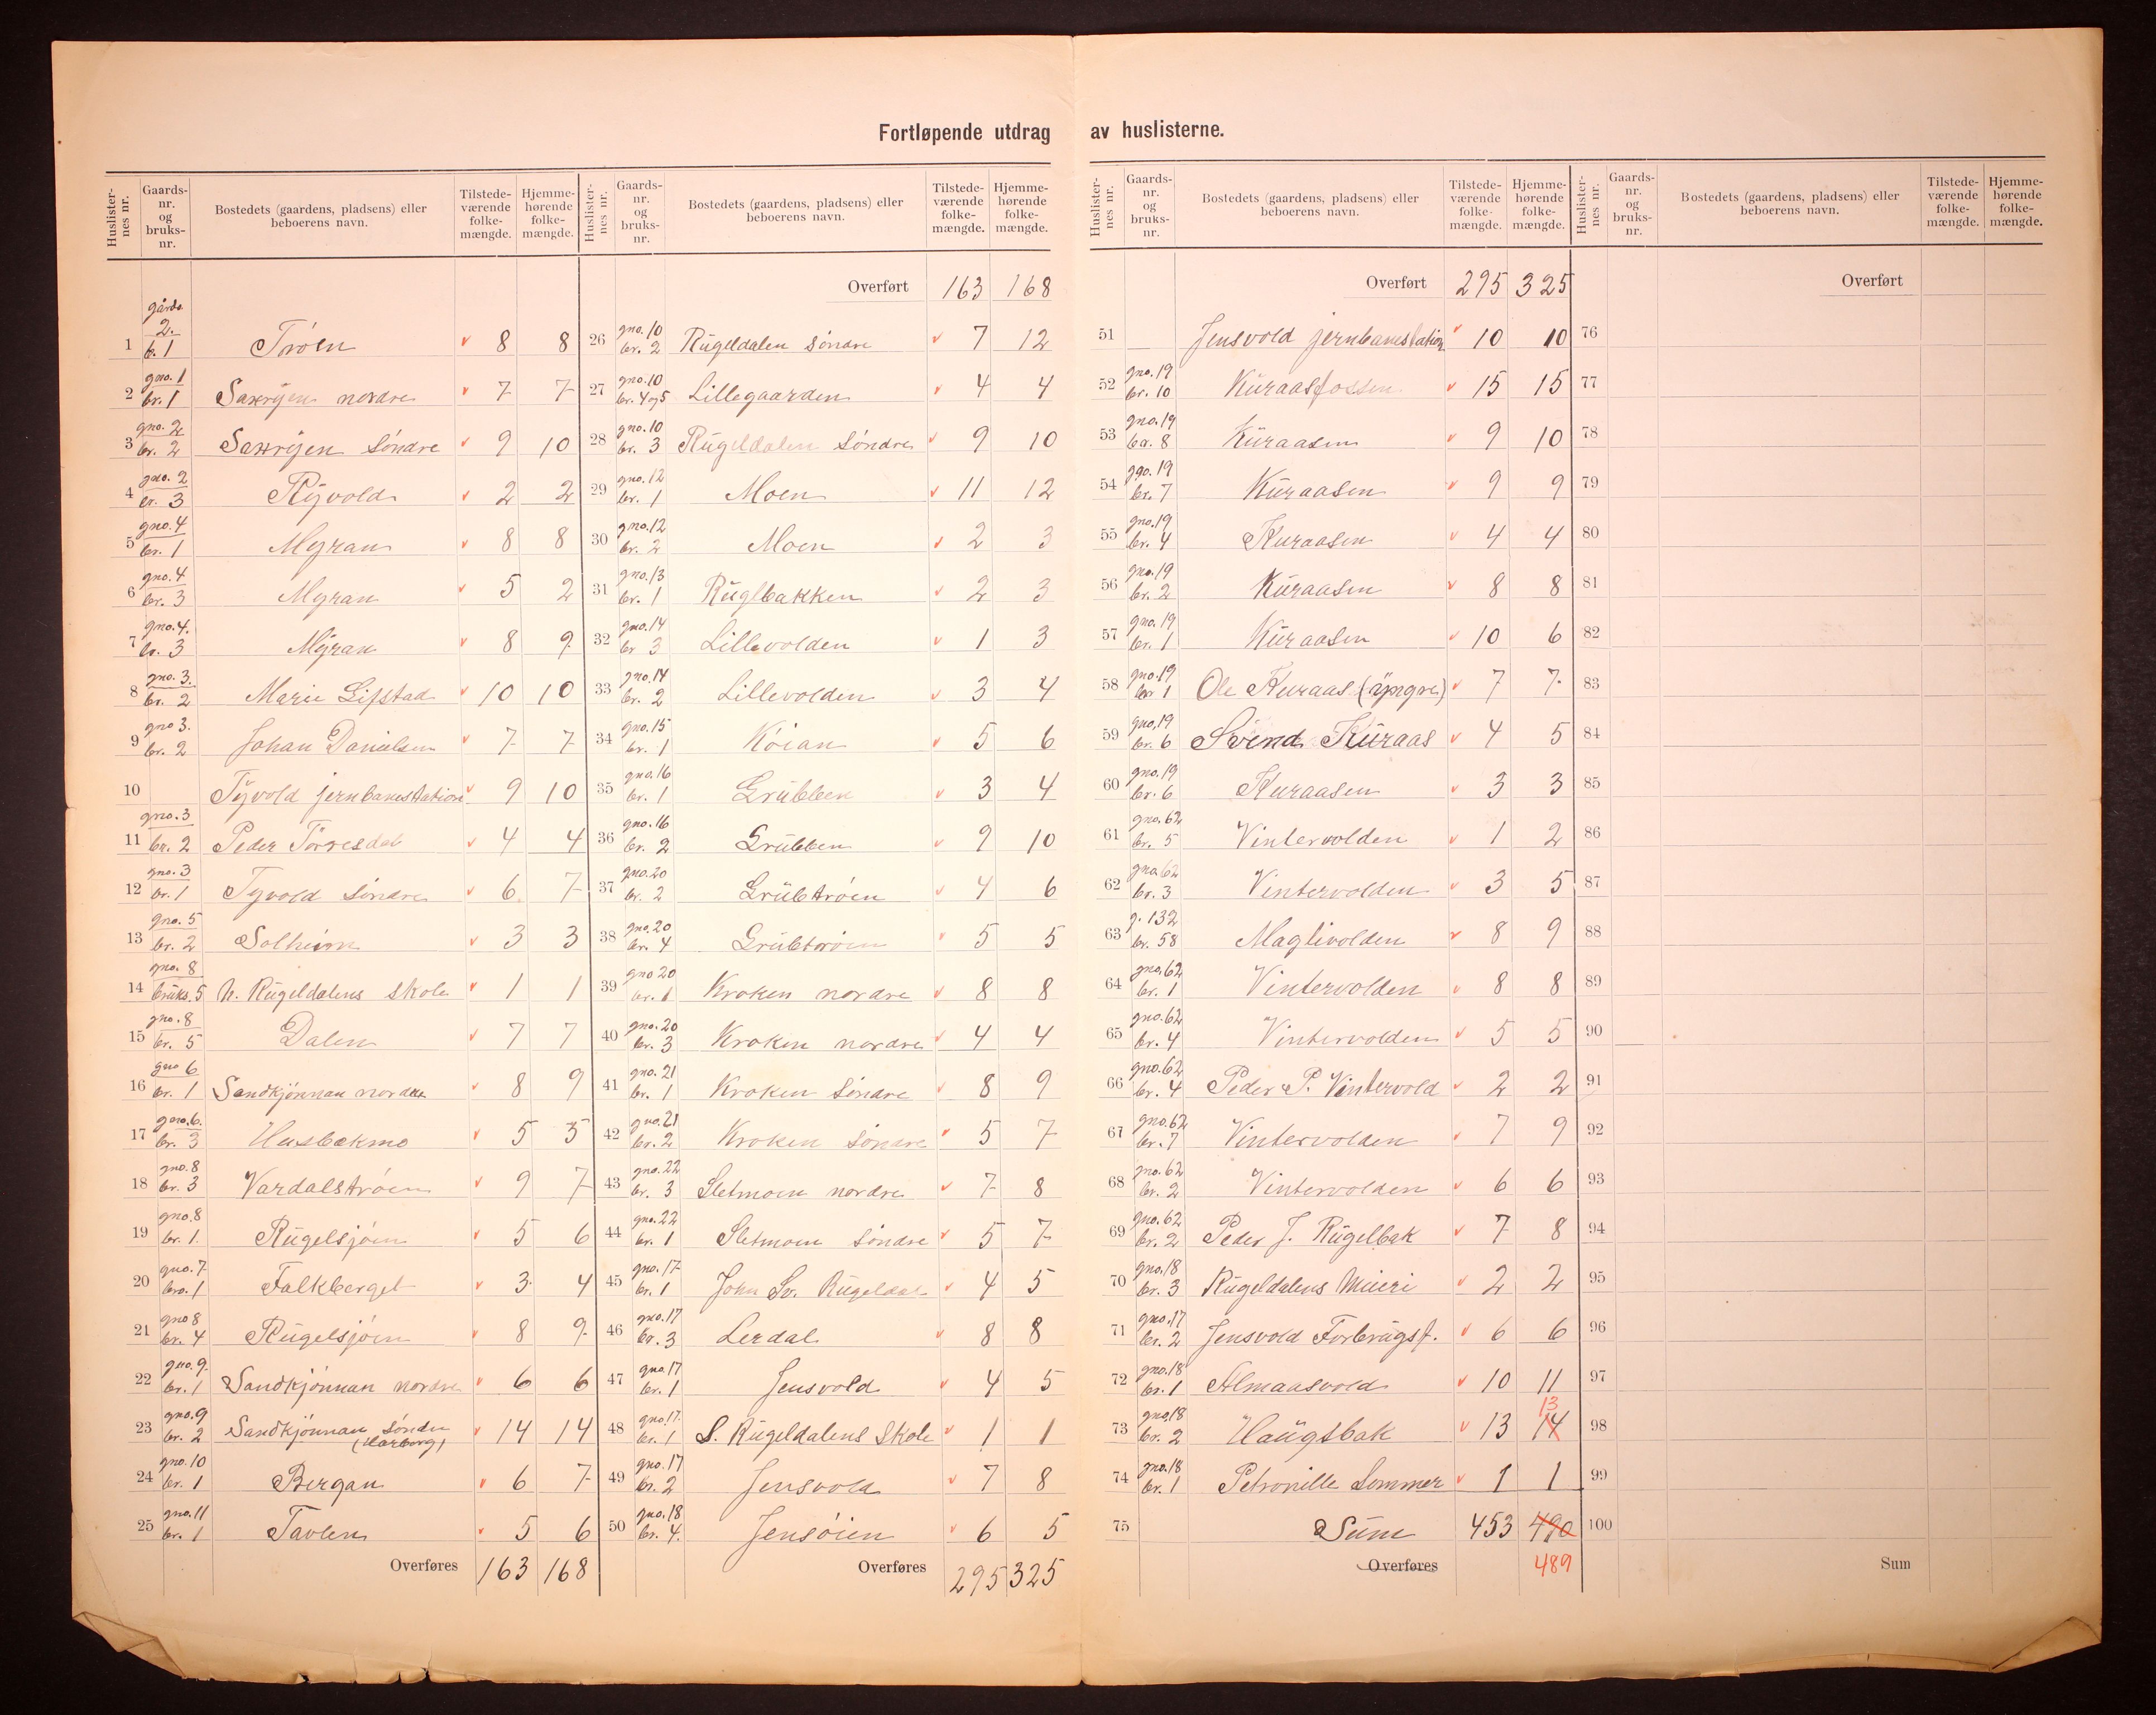 Fortløpende utdrag av huslisterne.
Huslister-nes nr. Gaards-nr. og bruks-nr. Bostedets (gaardens, pladsens) eller beboerens navn. Tilstede-værende folke-mængde. Hjemme-hørende folke-mængde.
gårds
1 2. br. 1 Trøen v 8 8
2 gno. 1 br. 1 Saxryen nordre v 7 7
3 gno. 2 br. 2 Saxryen Söndre v 9 10
4 gno. 2 br. 3 Ryvold v 2 2
5 gno. 4 br. 1 Myran v 8 8
6 gno. 4 br. 3 Myran v 5 2
7 gno. 4. br. 3 Myran v 8 9
8 gno. 3. br. 2 Marie Lifstad v 10 10
9 gno 3. br. 2 Johan Danielsen v 7 7
10 Tyvold jernbanestation v 9 10
11 gno. 3 br. 2 Peder Torresdal v 4 4
12 gno. 3 br. 1 Tyvold Söndre v 6 7
13 gno. 5 br. 2 Solheim v 3 3
14 gno. 8 bruks. 5 N. Rugeldalens Skole v 1 1
15 gno. 8 br. 5 Dalen v 7 7
16 gno 6 br. 1 Sandkjönnan nordre v 8 9
17 gno. 6. br. 3 Husbekmo v 5 5
18 gno. 8 br. 3 Vardalströen v 9 7
19 gno. 8 br. 1. Rugelsjöen v 5 6
20 gno. 7 bro. 1 Falkberget v 3 4
21 gno 8 br. 4 Rugelsjöen v 8 9
22 gno. 9. br. 1 Sandkjönnan nordre v 6 6
23 gno. 9 br. 2 Sandkjönnan Söndre (Harborg) v 14 14
24 gno. 10 br. 1 Bergan v 6 7
25 gno. 11 br. 1 Tavlen v 5 6
Overføres 163 168
Huslister-nes nr. Gaards-nr. og bruks-nr. Bostedets (gaardens, pladsens) eller beboerens navn. Tilstede-værende folke-mængde. Hjemme-hørende folke-mængde.
Overført 163 168
26 gno. 10 br. 2 Rugeldalen Söndre v 7 12
27 gno. 10 br. 4 og 5 Lillegaarden v 4 4
28 gno. 10 br. 3 Rugeldalen Söndre v 9 10
29 gno. 12 br. 1 Moen v 11 12
30 gno. 12 br. 2 Moen v 2 3
31 gno. 13 br. 1 Ruglbakken v 2 3
32 gno. 14 br 3 Lillevolden v 1 3
33 gno. 14 br. 2 Lillevolden v 3 4
34 gno. 15 br. 1 Köian v 5 6
35 gno. 16 br. 1 Grubben v 3 4
36 gno. 16 br. 2 Grubben v 9 10
37 gno. 20 br. 2 Grubtröen v 4 6
38 gno. 20 br. 4 Grubtröen v 5 5
39 gno 20 br. 1 Kroken nordre v 8 8
40 gno. 20 br. 3 Kroken nordre v 4 4
41 gno. 21 br. 1 Kroken Söndre v 8 9
42 gno. 21 br. 2 Kroken Söndre v 5 7
43 gno. 22 br. 3 Sletmoen nordre v 7 8
44 gno. 22 br. 1 Sletmoen Söndre v 5 7
45 gno. 17 br. 1 John Sv. Rugeldal v 4 5
46 gno. 17 br. 3 Lerdal v 8 8
47 gno. 17 br. 1 Jensvold v 4 5
48 gno. 17. br. 1 S. Rugeldalens Skole v 1 1
49 gno. 17 br. 2 Jensvold v 7 8
50 gno. 18 br. 4. Jensöien v 6 5
Overføres 295 325
Huslister-nes nr. Gaards-nr. og bruks-nr. Bostedets (gaardens, pladsens) eller beboerens navn. Tilstede-værende folke-mængde. Hjemme-hørende folke-mængde.
Overført 295 325
51 Jensvold jernbanestation v 10 10
52 gno. 19 br. 10 Kuraasfossen v 15 15
53 gno. 19 br. 8 Kuraasen v 9 10
54 gno. 19 br. 7 Kuraasen v 9 9
55 gno. 19 br. 4 Kuraasen v 4 4
56 gno. 19 br. 2 Kuraasen v 8 8
57 gno. 19 br. 1 Kuraasen v 10 6
58 gno. 19 br 1 Ole Kuraas (yngre) v 7 7
59 gno. 19 br. 6 Svend Kuraas v 4 5
60 gno. 19 br. 6 Kuraasen v 3 3
61 gno. 62 br. 5 Vintervolden v 1 2
62 gno. 62 br. 3 Vintervolden v 3 5
63 g. 132 br. 58 Maglivolden v 8 9
64 gno. 62 br. 1 Vintervolden v 8 8
65 gno. 62 br. 4 Vintervolden v 5 5
66 gno. 62 br. 4 Peder P. Vintervold v 2 2
67 gno. 62 br. 7 Vintervolden v 7 9
68 gno. 62 br. 2 Vintervolden v 6 6
69 gno. 62 br. 2 Peder J. Rugelbak v 7 8
70 gno. 18 br. 3 Rugeldalens Meieri v 2 2
71 gno. 17 br. 2 Jensvold Forbrugsf. v 6 6
72 gno. 18 br. 1 Almaasvold v 10 11
73 gno. 18 br. 2 Haugsbak v 13 14 13
74 gno. 18 br. 1 Petronille Sommer v 1 1
75 Sum 453 490
Overføres 489
Huslister-nes nr. Gaards-nr. og bruks-nr. Bostedets (gaardens, pladsens) eller beboerens navn. Tilstede-værende folke-mængde. Hjemme-hørende folke-mængde.
Overført
76
77
78
79
80
81
82
83
84
85
86
87
88
89
90
91
92
93
94
95
96
97
98
99
100
Sum